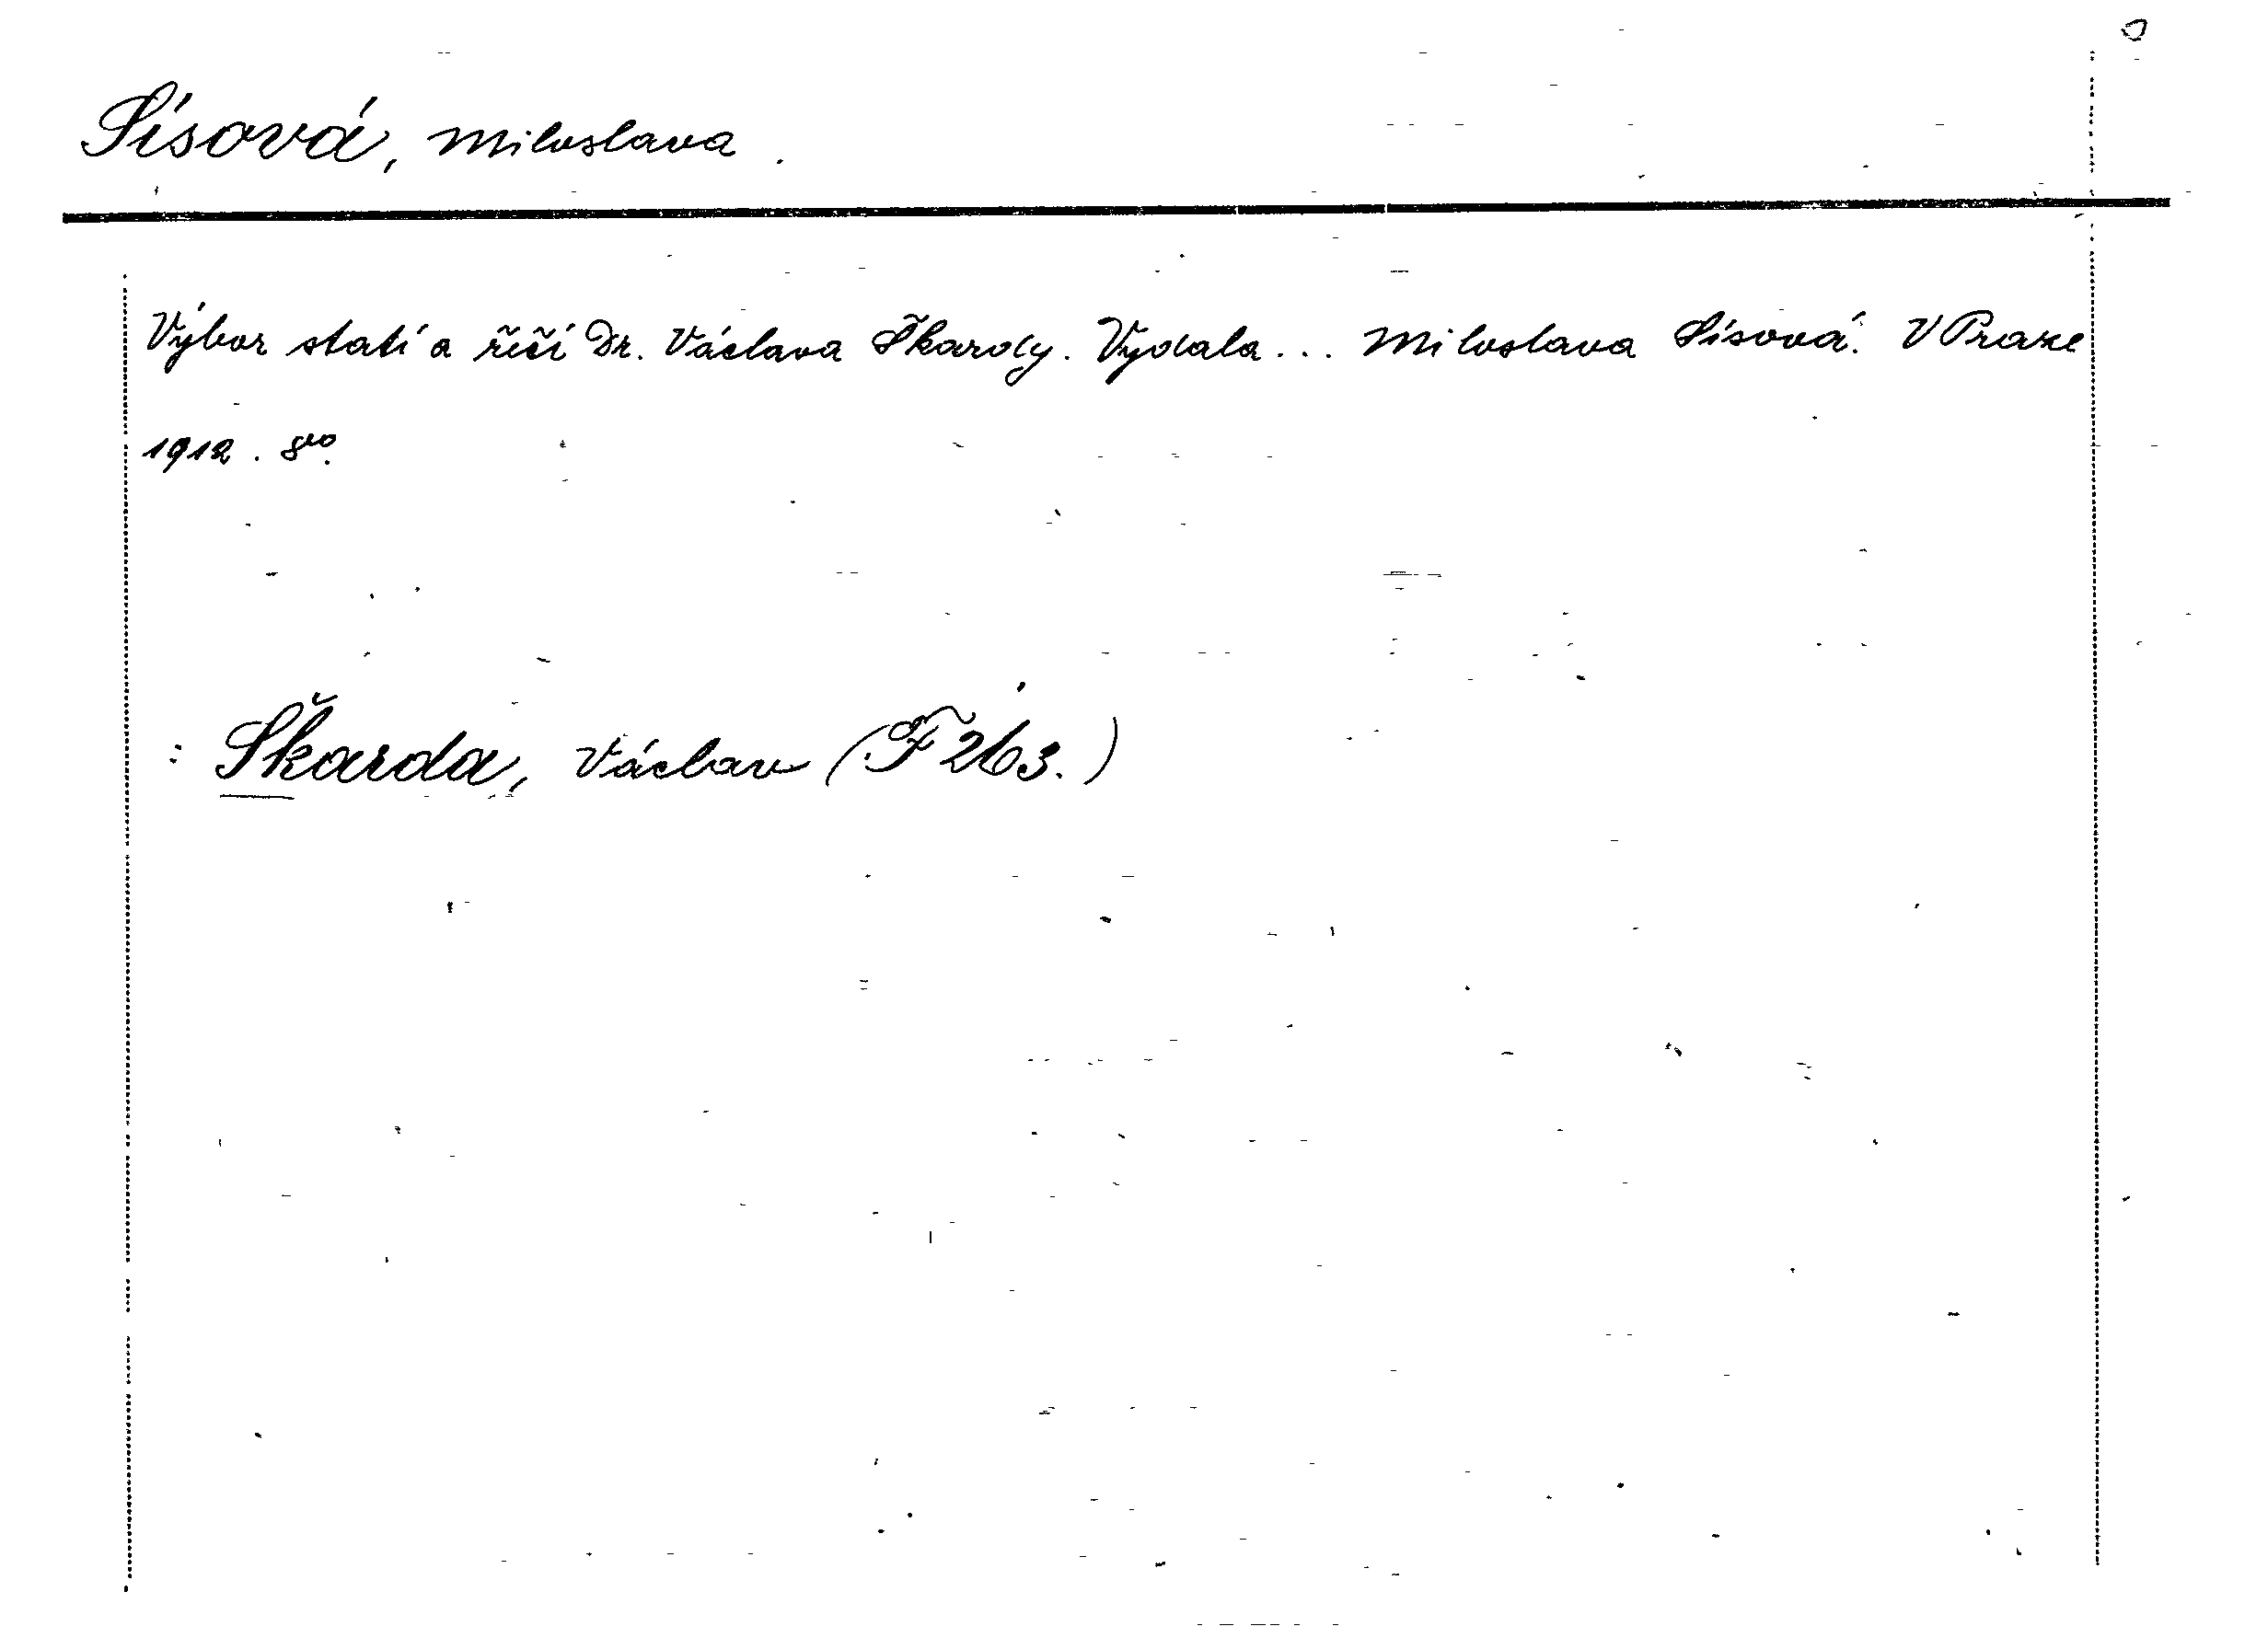 Sísová, Miloslava.
Výbor statí a řečí Dr. Václava Škardy. Vydala... Miloslava Sísová. V Praze
1912. 8vo.
: Škarda, Václav (F 263.)